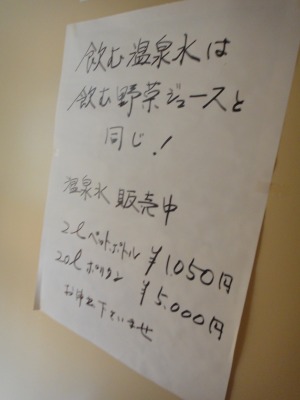 飲む温泉水は
飲む野菜ジュースと
同じ!
温泉水販売中
2ℓペットボトル ¥1.050円
20ℓポリタン ¥5.000円
お申下さいませ